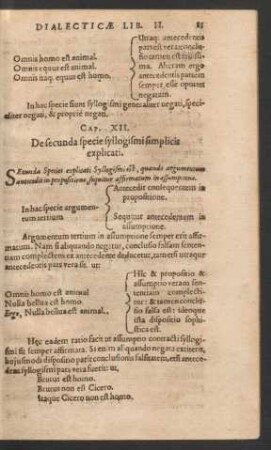 DIALECTICÆ LIB. II.
Omnis homo est animal.
Omnis equus est animal.
Omnis itaq. equus est homo.
Utraq. antecedentis
pars est vera: conclu-
sio tamen est falsissi-
ma. Alteram ergo
antecedentis partem
semper esse oportet
negatum.
In hac specie fiunt syllogismi generaliter negati, speci-
aliter negati, & propriè negati.
CAP. XII.
De secunda specie syllogismi simplicis
explicati.
Secunda Species explicati Syllogismi est, quando argumentum
antecedit in propositione, sequitur affirmatum in assumptione.
In hac specie argumen-
tum tertium
Antecedit consequentem in
propositione.
Sequitur antecedentem in
assumptione.
Argumentum tertium in assumptione semper erit affir-
matum. Nam si aliquando negetur, conclusio falsam senten-
tiam complectetur ex antecedente deductam; tametsi utraque
antecedentis pars vera sit. ut:
Omnis homo est animal
Nulla bellua est homo.
Ergo, Nulla bellua est animal.
Hîc & propositio &
assumptio veram sen-
tentiam complecti-
tur: & tamen conclu-
sio falsa est: ideoque
ista dispositio sophi-
stica est.
Hæc eadem ratio facit ut assumptio contracti syllogi-
smi sit semper affirmata. Si enim aliquando negata extiterit,
hujusmodi dispositio pariet conclusionis falsitatem, etsi antece-
dens syllogismi pars vera fuerit: ut,
Brutus est homo.
Brutus non est Cicero.
Itaque Cicero non est homo.